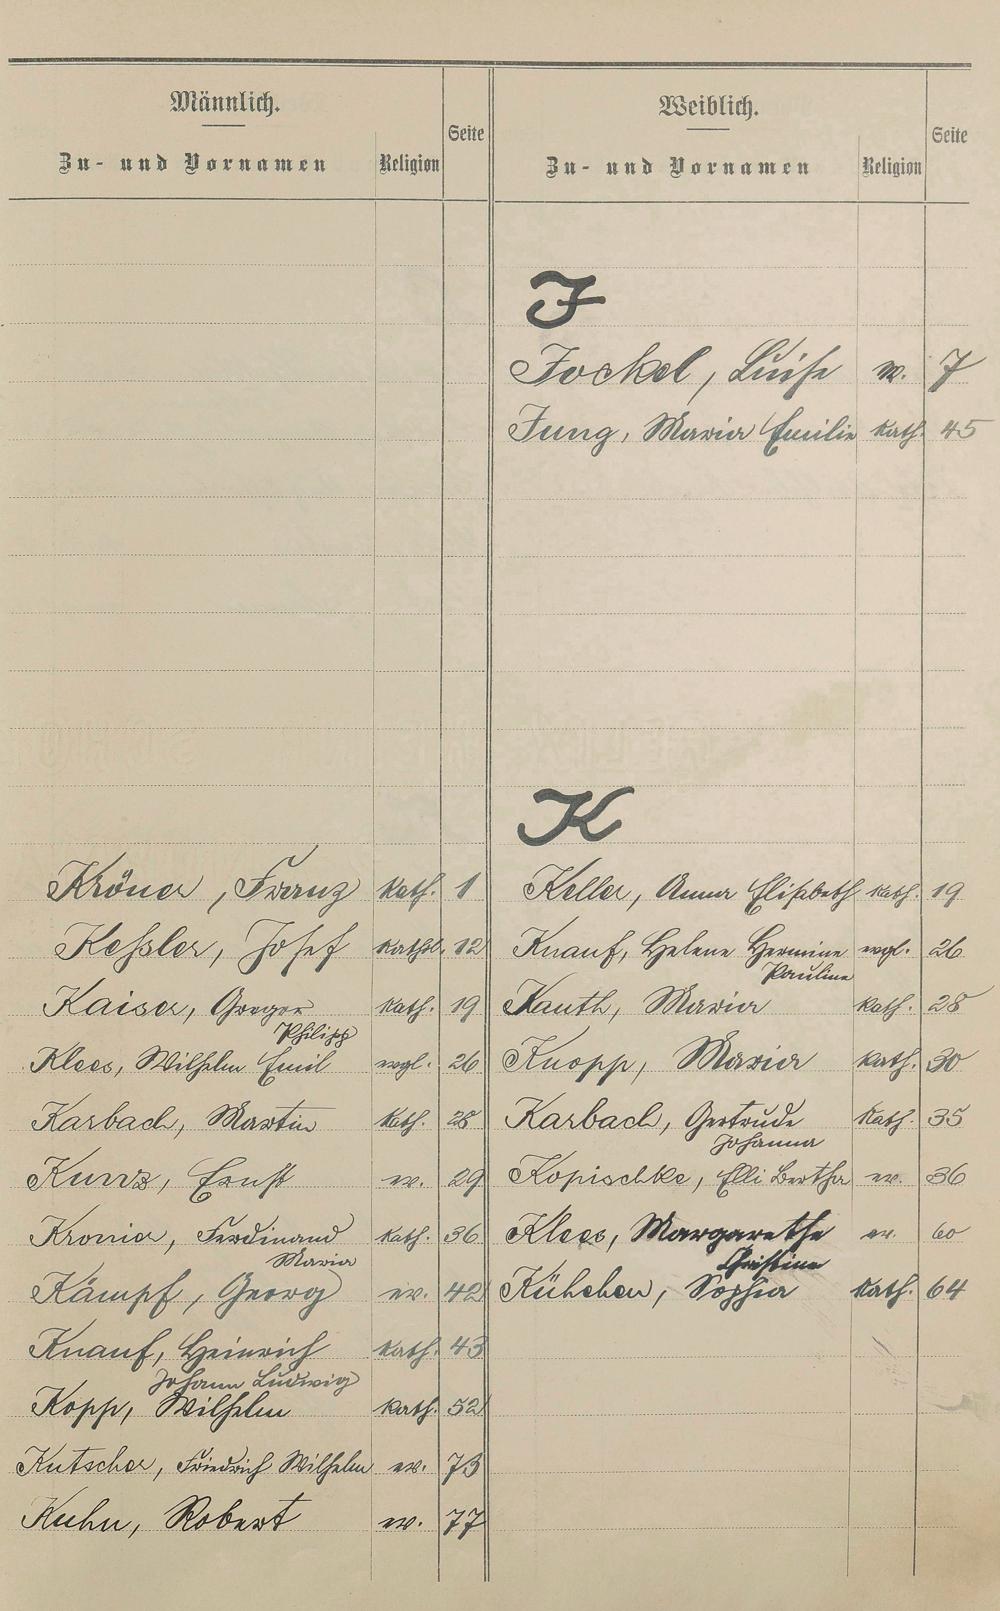 Männlich.
Zu- und Vornamen Religion Seite
Kröner, Franz kath. 1
Keßler, Josef kathol. 12
Kaiser, Gregor kath. 19
Philipp
Klees, Wilhelm Emil evgl. 26
Karbach, Martin kath. 28
Kunz, Ernst ev. 29
Kronier, Ferdinand kath. 36
Maria
Kämpf, Georg ev. 42
Knauf, Heinrich kath. 43
Johann Ludwig
Kopp, Wilhelm kath. 52
Kutscher, Friedrich Wilhelm ev. 73
Kuhn, Robert ev. 77
Weiblich.
Zu- und Vornamen Religion Seite
J
Jockel, Luise ev. 7
Jung, Maria Emilie kath. 45
K
Keller, Anna Elisabeth kath. 19
Knauf, Helene Hermine evgl. 26
Pauline
Kauth, Maria kath. 28
Knopp, Maria kath. 30
Karbach, Gertrude kath. 35
Johanna
Kopischke, Elli Bertha ev. 36
Klees, Margarethe ev. 60
Christine
Kühchen, Sophia kath. 64